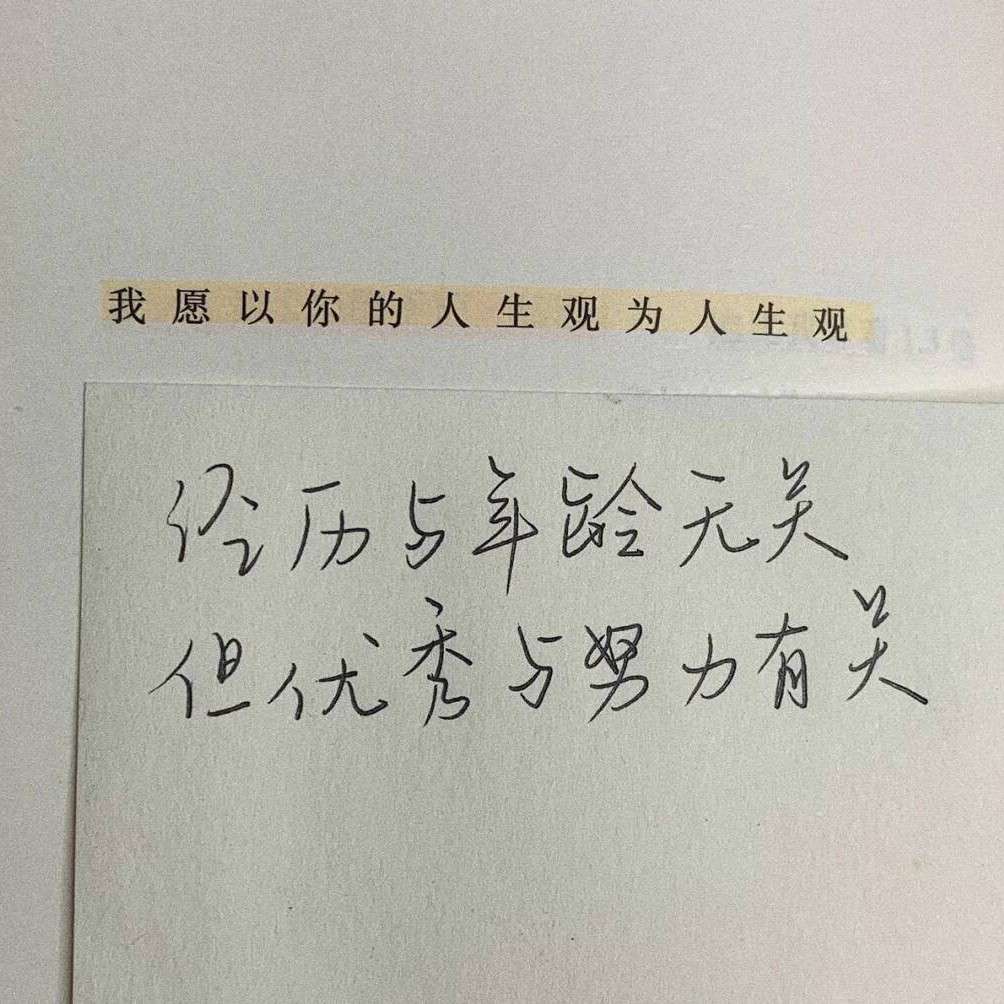 我愿以你的人生观为人生观
经历与年龄无关
但优秀与努力有关